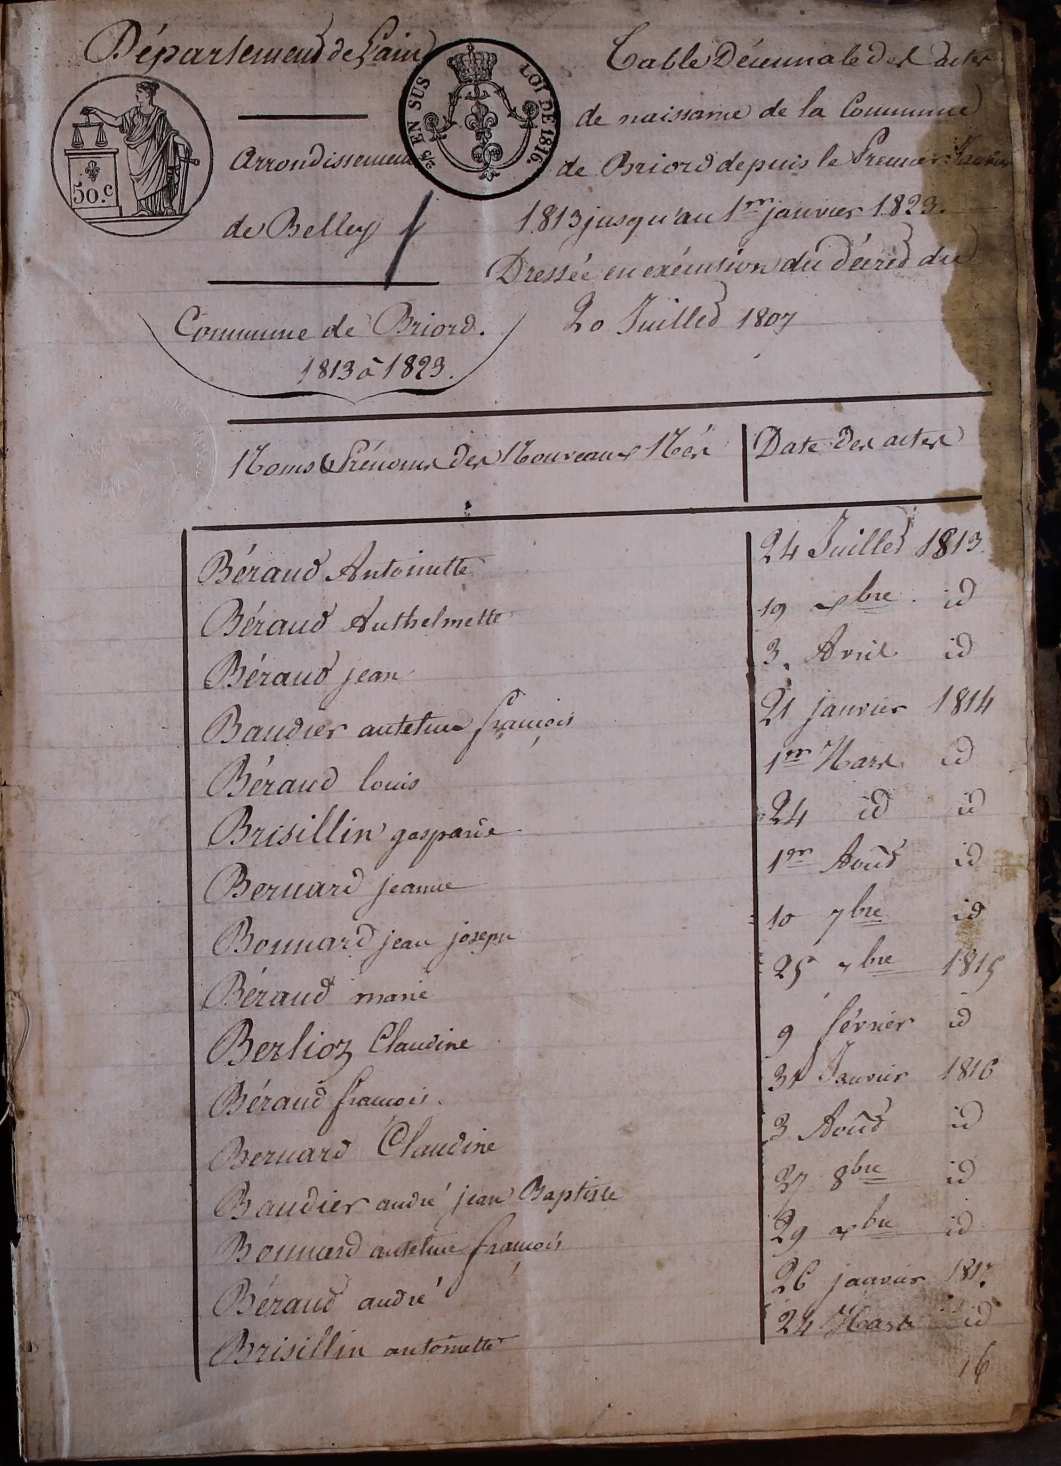 Département de l'ain
Arrondissement
de Belley
Commune de Briord.
1813 à 1823.
50.c
5/c EN SUS
LOI DE 1816.
Table Décennale des actes
de naissance de la Commune
de Briord depuis le Premier Janvier
1813 jusqu'au 1er janvier 1823.
Dressée en exécution du décret du
20 Juillet 1807
Noms & Prénoms des Nouveaux Nés Date des actes
Béraud Antoinette 24 Juillet 1813
Béraud Anthelmette 19 xbre id
Béraud jean 3. Avril id
Baudier antelme françois 21 janvier 1814
Béraud louis 1er Mars id
Brisillin gasparie 24 id id
Bernard jeanne 1er Août id
Bonnard jean joseph 10 7bre id
Béraud marie 25 xbre 1815
Berlioz Claudine 9 février id
Béraud françois. 31 Janvier 1816
Bernard Claudine 3 Août id
Baudier andré jean Baptiste 8bre id
Bonnard antelme françois 29 xbre id
Béraud andré 26 janvier 1817
Brisillin antoinette 24 Mars id
16